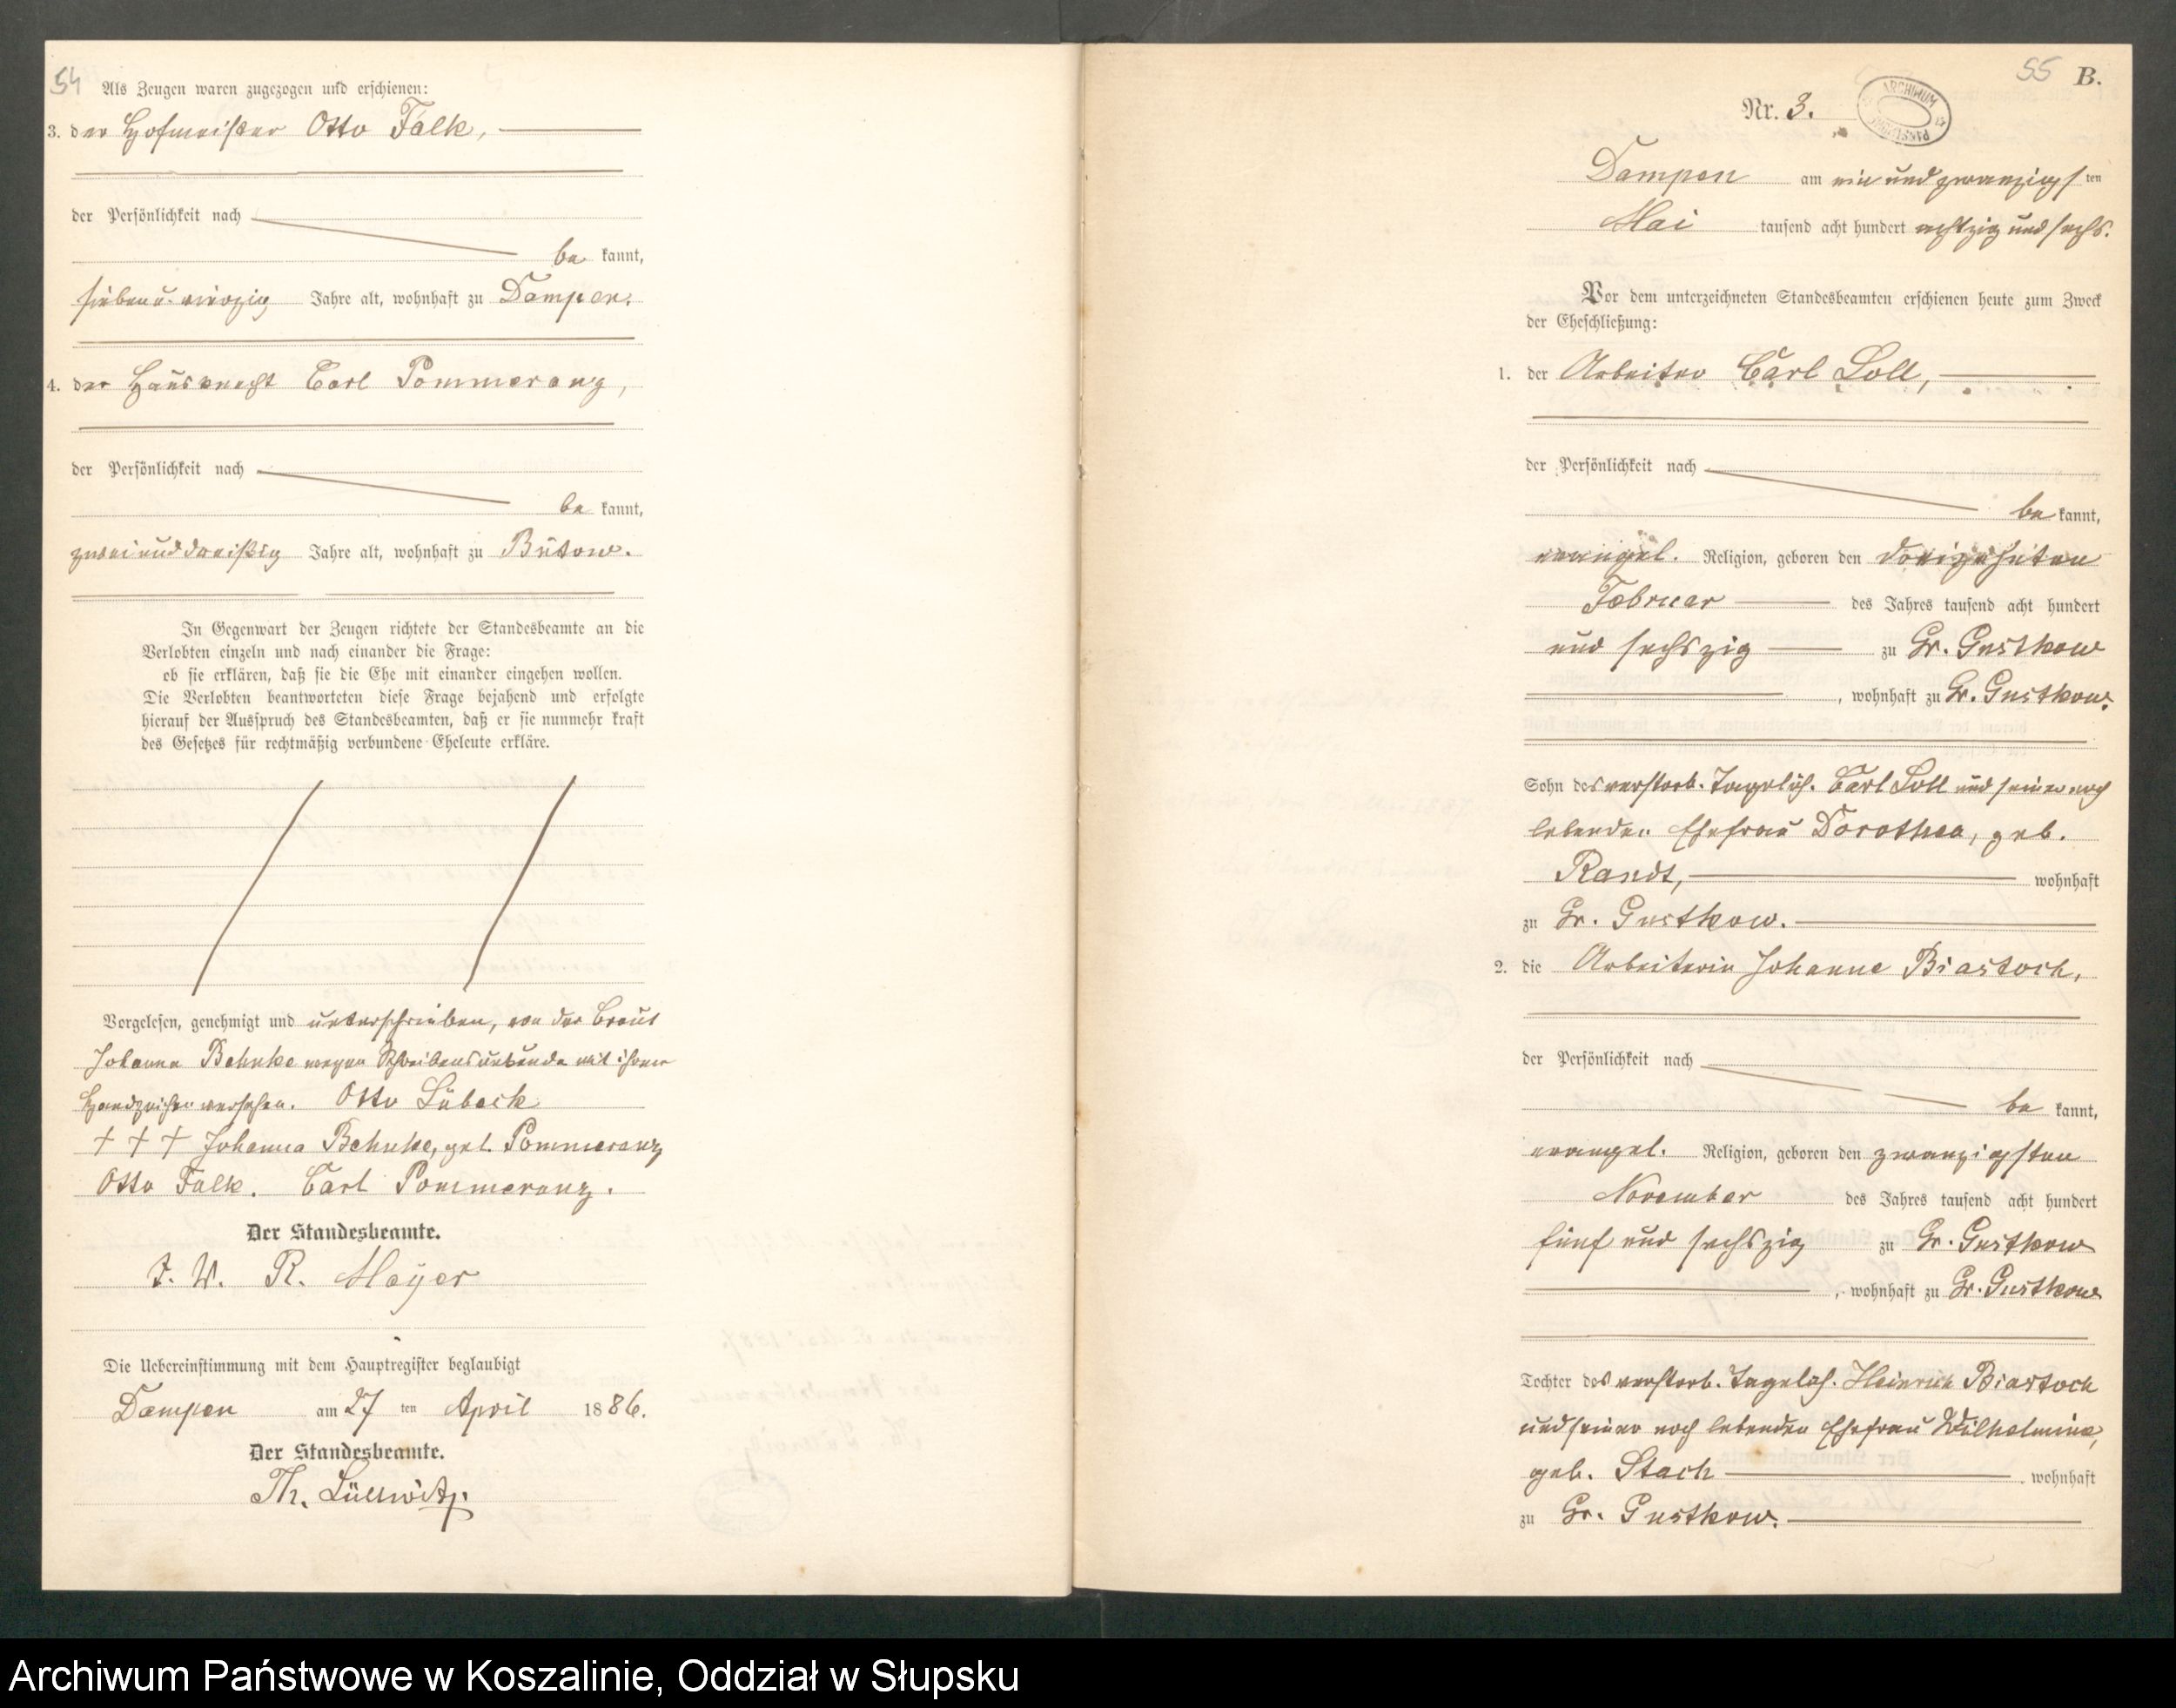 54
Als Zeugen waren zugezogen und erschienen:
3. der Hofmeister Otto Falk,
der Persönlichkeit nach
be kannt,
sieben u. vierzig Jahre alt, wohnhaft zu Dampen.
4. der Hausknecht Carl Pommeranz,
der Persönlichkeit nach
be kannt,
zwei und dreißig Jahre alt, wohnhaft zu Bütow.
In Gegenwart der Zeugen richtete der Standesbeamte an die
Verlobten einzeln und nach einander die Frage:
ob sie erklären, daß sie die Ehe mit einander eingehen wollen.
Die Verlobten beantworteten diese Frage bejahend und erfolgte
hierauf der Ausspruch des Standesbeamten, daß er sie nunmehr kraft
des Gesetzes für rechtmäßig verbundene Eheleute erkläre.
Vorgelesen, genehmigt und unterschrieben, von der Braut
Johanna Behnke wegen Schreibensunkunde mit ihrem
Handzeichen versehen. Otto Lübeck
† † † Johanna Behnke, geb. Pommeranz
Otto Falk. Carl Pommeranz.
Der Standesbeamte.
J. V. R. Mayer
Die Uebereinstimmung mit dem Hauptregister beglaubigt
Dampen am 27 ten April 1886.
Der Standesbeamte.
Th. Lüllwitz.
55 B.
Nr. 3.
ARCHIWUM PAŃSTWOWE
Dampen am ein und zwanzigs ten
Mai tausend acht hundert achtzig und sechs.
Vor dem unterzeichneten Standesbeamten erschienen heute zum Zweck
der Eheschließung:
1. der Arbeiter Carl Loll,
der Persönlichkeit nach
be kannt,
evangel. Religion, geboren den dreizehnten
Februar des Jahres tausend acht hundert
und sechszig zu Gr. Gustkow
, wohnhaft zu Gr. Gustkow.
Sohn des verstorb. Tagelöh. Carl Loll und seiner noch
lebenden Ehefrau Dorothea, geb.
Randt, wohnhaft
zu Gr. Gustkow.
2. die Arbeiterin Johanne Biastock,
der Persönlichkeit nach
be kannt,
evangel. Religion, geboren den zwanzigsten
November des Jahres tausend acht hundert
fünf und sechszig zu Gr. Gustkow
, wohnhaft zu Gr. Gustkow
Tochter des verstorb. Tagelöh. Heinrich Biastock
und seiner noch lebenden Ehefrau Wilhelmine,
geb. Stach wohnhaft
zu Gr. Gustkow.
Archiwum Państwowe w Koszalinie, Oddział w Słupsku